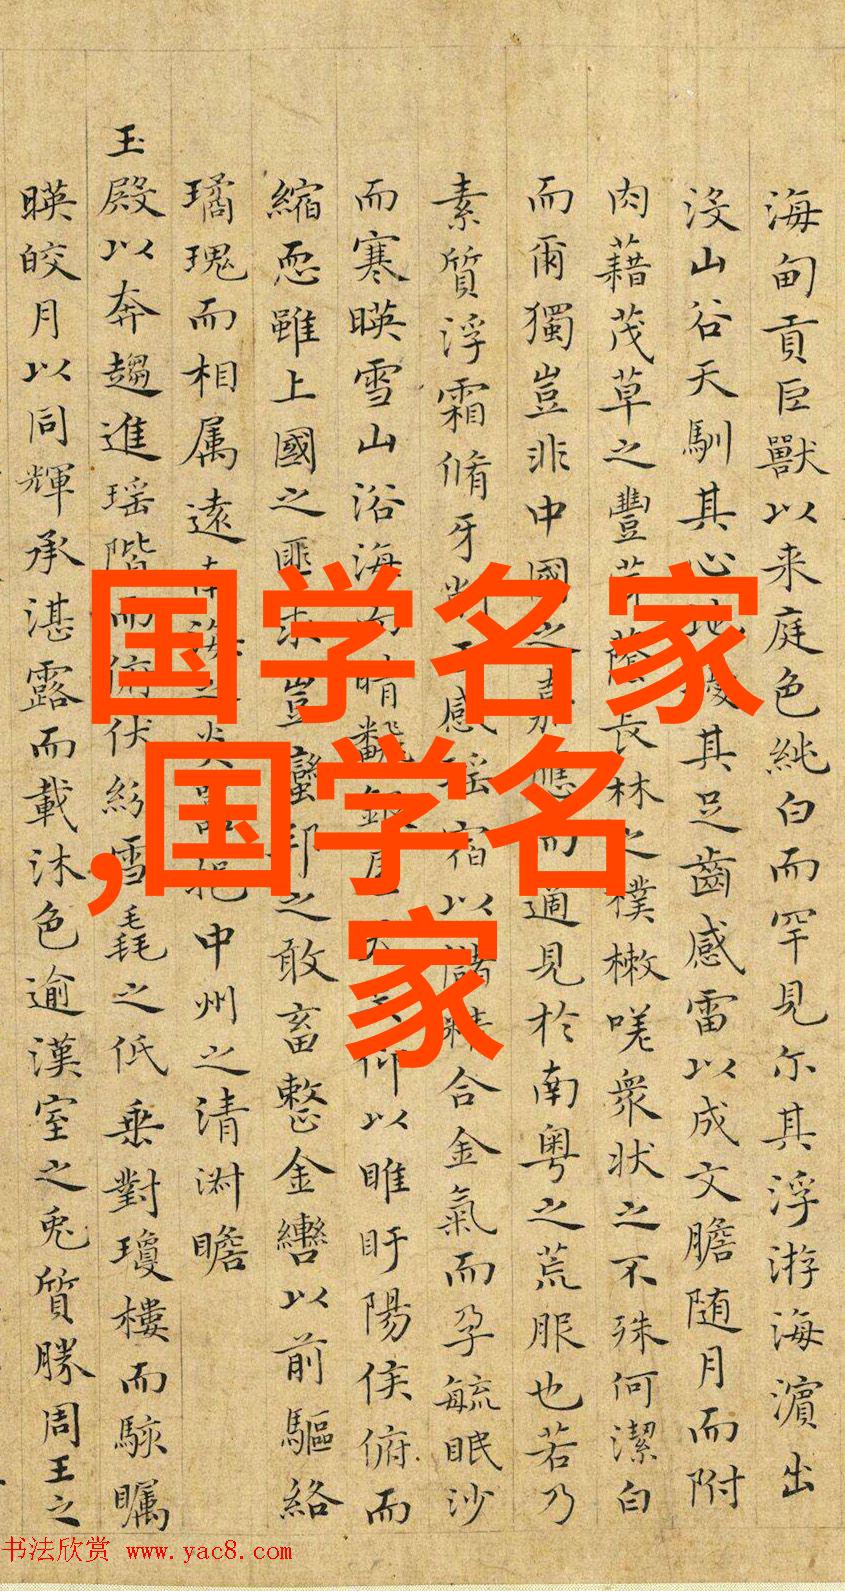 国学名家
,国学名
家
海甸貢巨獸以来庭色純白而罕見尓其浮游海濵出
没山谷天馴其心地擾其足齒感雷以成文膽随月而附
肉藉茂草之豐茸蔭長林之樸樕嗟衆状之不殊何潔白
而爾獨豈非中國之嘉應而適見於南粤之荒服也若乃
素質浮霜脩牙玉感瑶宿以儲精合金氣而孕毓眠沙
而寒暎雪山浴海而晴飜銀屋仰以睢盱陽侯俯而
縮恧雖上國之匪求豈蠻邦之敢畜整金轡以前驅絡
璚瑰而相属遠海之炎挹中州之清淑瞻
玉殿以奔趨進瑶階而俯伏紛雪毳之低垂對瓊樓而駭矚
暎皎月以同輝承湛露而載沐色逾漢室之兎質勝周王之
书法欣赏 www.yac8.com